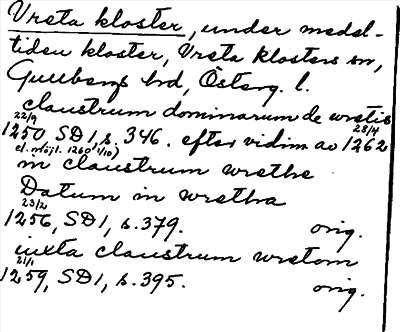 Vreta kloster, under medel-
tiden kloster, Vreta klosters sn,
Gullbergs hd, Österg. l.
claustrum dominarum de wretis
22/9 28/4
1250 SD 1, s. 346. efter vidim av 1262
el. möjl. 1260 1/10)
in claustrum wrethe
Datum in wretha
23/2
1256, SD 1, s. 379. orig.
iuxta claustrum wretom
21/1
1259, SD 1, s. 395. orig.